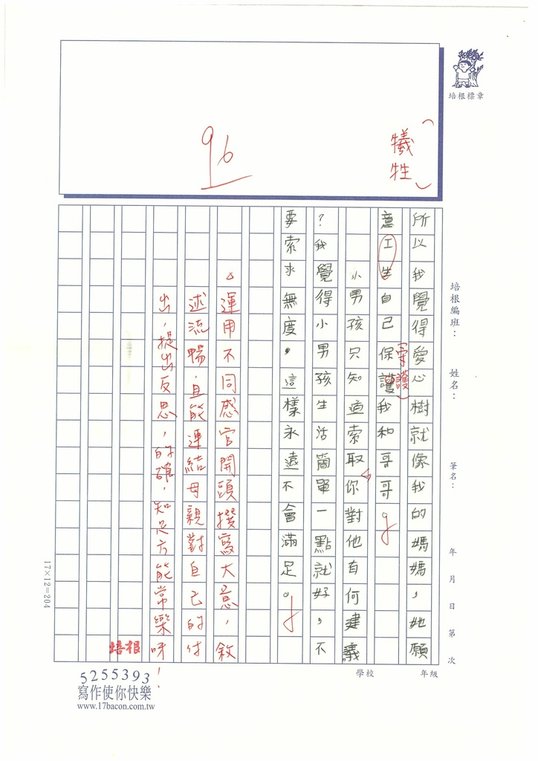 培根標章
（犧牲）
96
培根編班： 姓名： 筆名： 年 月 日 第 次
學校 年級
所以我覺得愛心樹就像我的媽媽，她願
意工生自己保護我和哥哥。
（守護）
小男孩只知道索取，你對他有何建議
？我覺得小男孩生活簡單一點就好，不
要索求無度，這樣永遠不會滿足。
△運用不同感官開頭撰寫大意，敘
述流暢，且能連結母親對自己的付
出，提出反思，的確，知足方能常樂呀！
培根
17×12=204
5255393
寫作使你快樂
www.17bacon.com.tw